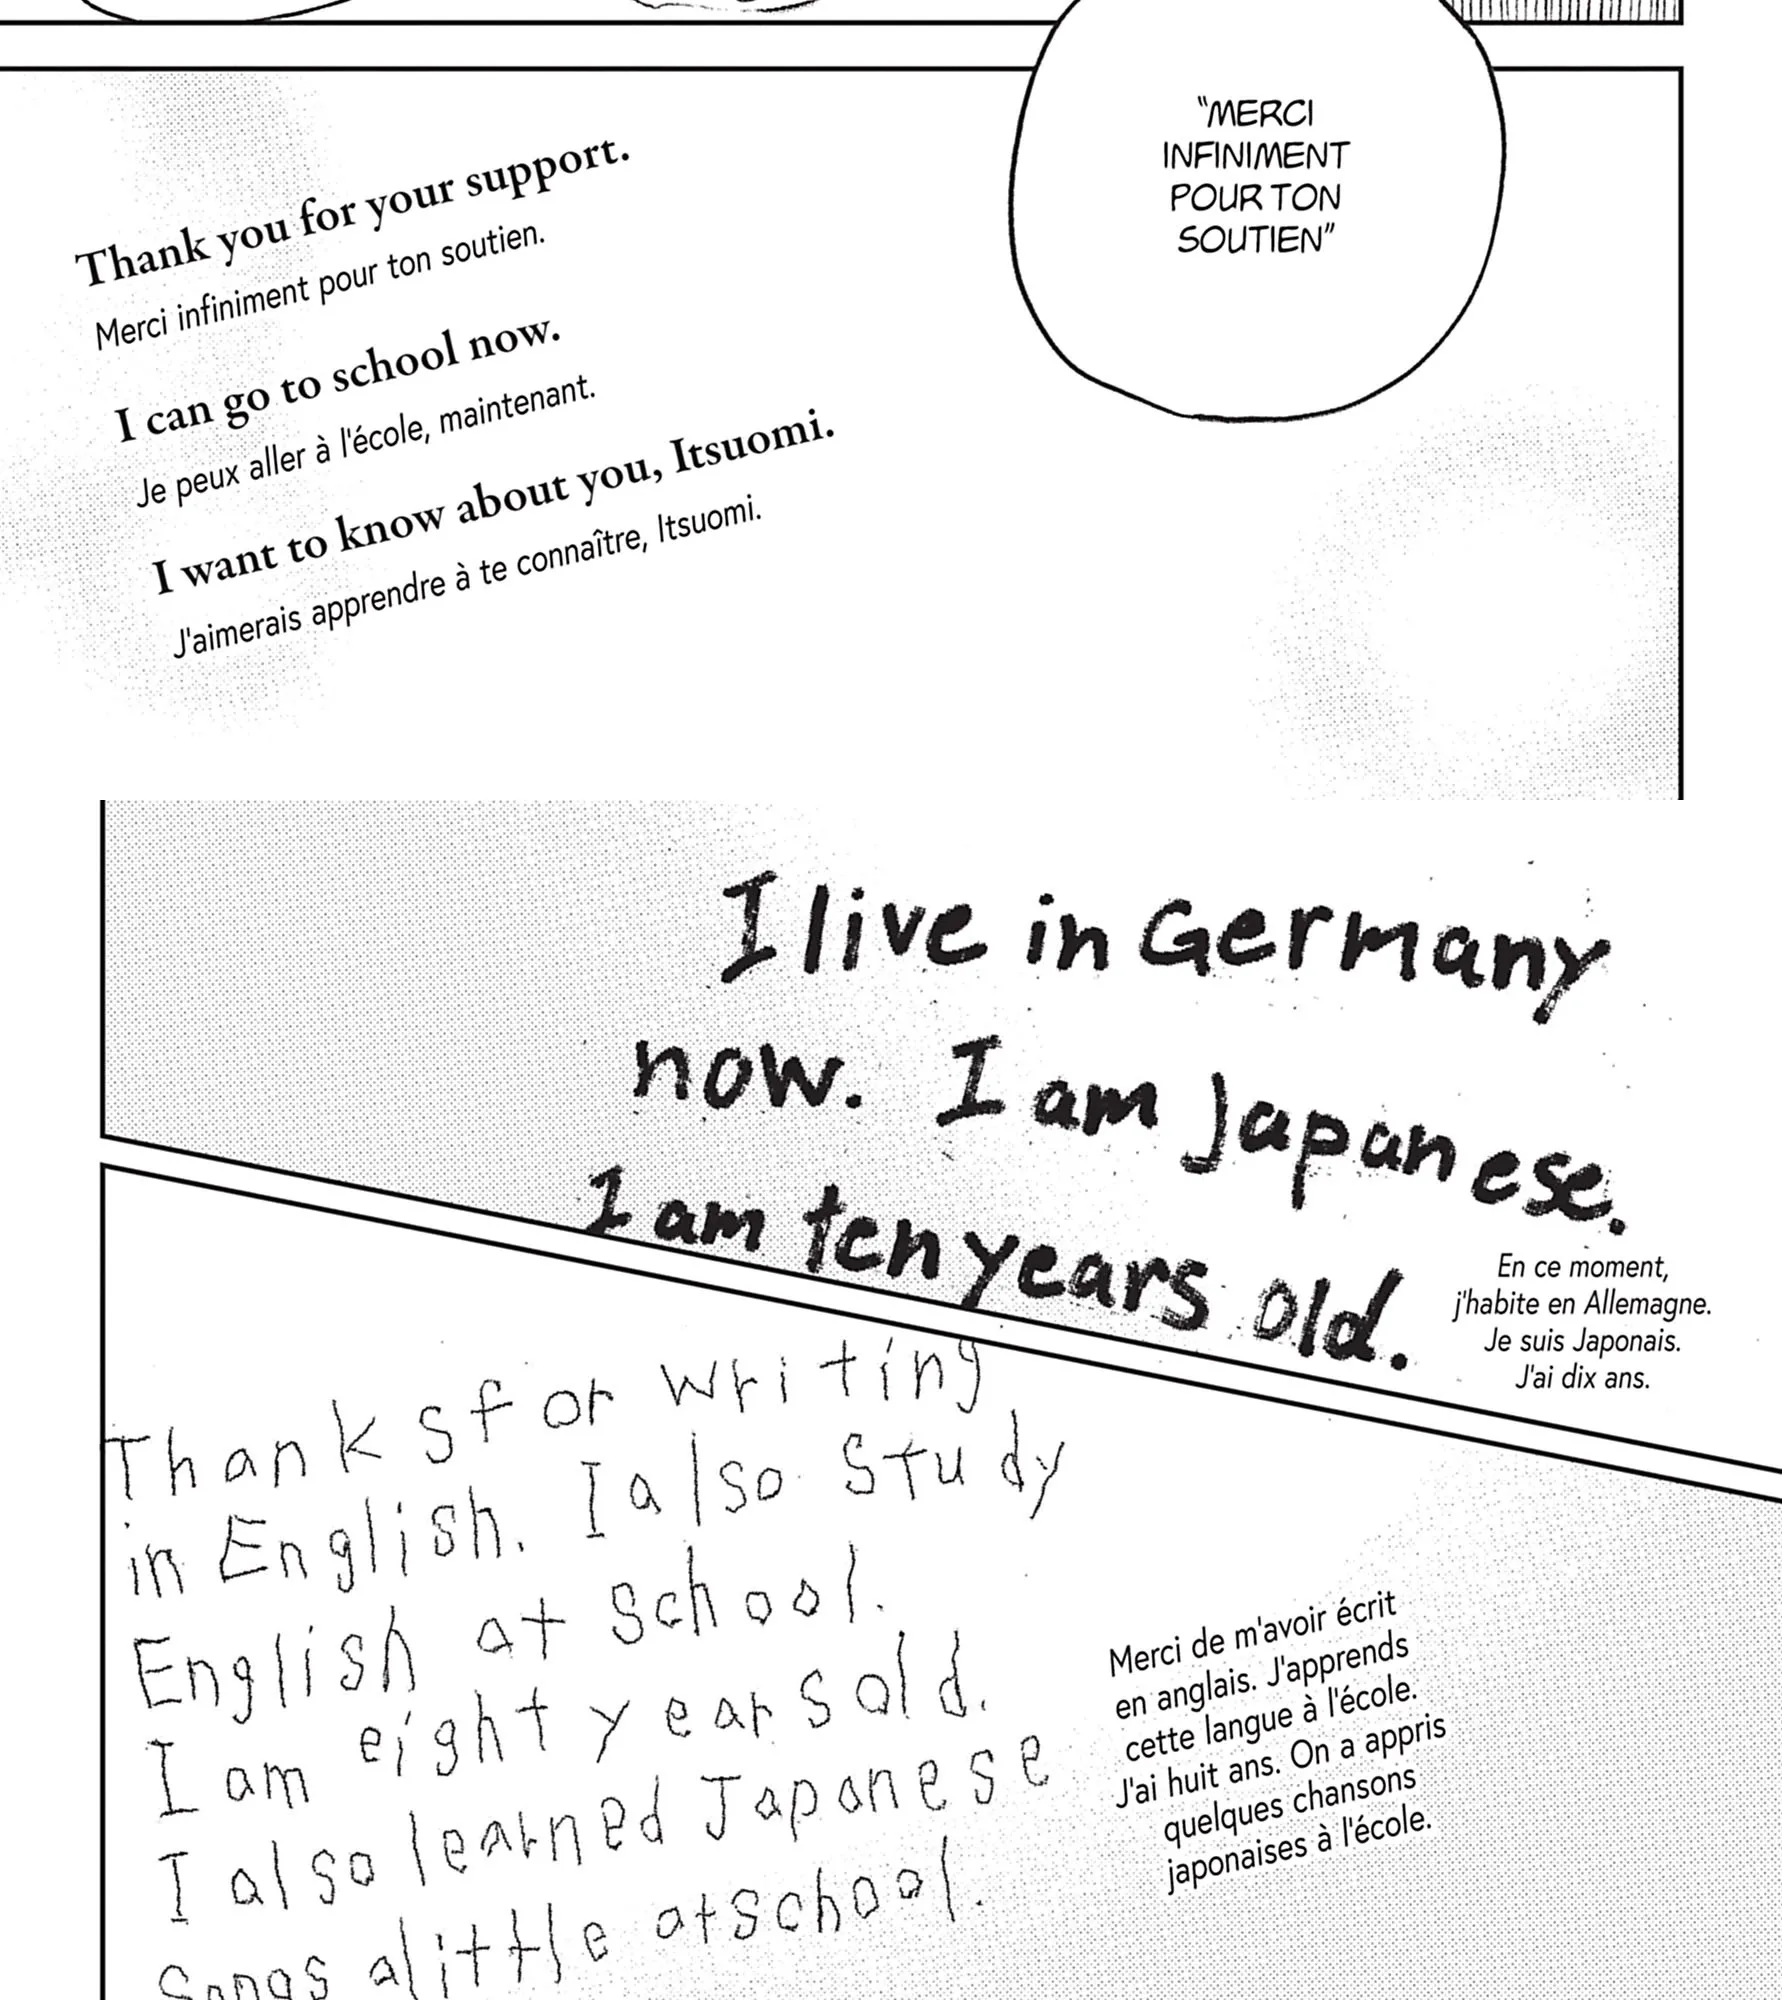 "MERCI
INFINIMENT
POUR TON
SOUTIEN"
Thank you for your support.
Merci infiniment pour ton soutien.
I can go to school now.
Je peux aller à l'école, maintenant.
I want to know about you, Itsuomi.
J'aimerais apprendre à te connaître, Itsuomi.
I live in Germany
now. I am Japanese.
I am ten years old.
En ce moment,
j'habite en Allemagne.
Je suis Japonais.
J'ai dix ans.
Thanks for writing
in English. I also study
English at school.
I am eight years old.
I also learned Japanese
songs a little at school.
Merci de m'avoir écrit
en anglais. J'apprends
cette langue à l'école.
J'ai huit ans. On a appris
quelques chansons
japonaises à l'école.